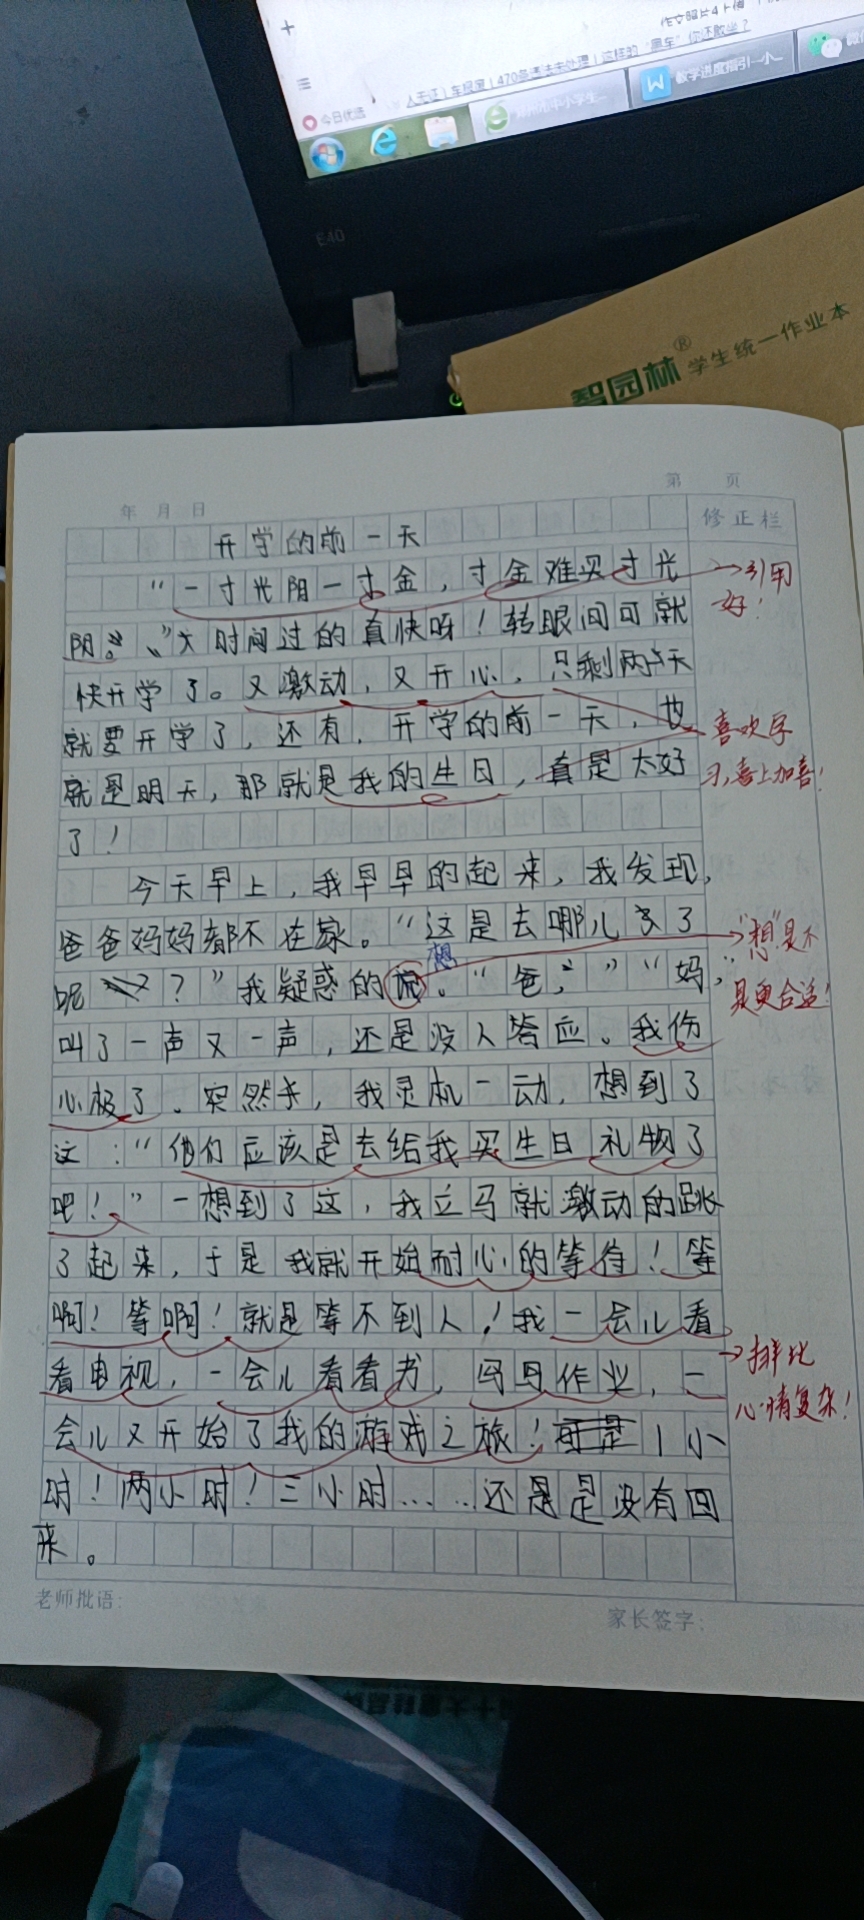 今日优选
人无证|车报废|470条违法未处理|这样的“黑车”你还敢坐？
教学进度指引—小...
E40
智园林®
学生统一作业本
年 月 日
第 页
修正栏
开学的前一天
“一寸光阴一寸金，寸金难买寸光
阴。”
时间过的真快呀！转眼间可就
快开学了。又激动，又开心，只剩两天
就要开学了，还有，开学的前一天，也
就是明天，那就是我的生日，真是太好
了！
今天早上，我早早的起来，我发现，
爸爸妈妈都不在家。“这是去哪儿了
呢？”我疑惑的想。“爸，”“妈，”
叫了一声又一声，还是没人答应。我伤
心极了。突然，我灵机一动，想到了
这：“他们应该是去给我买生日礼物了
吧！”一想到了这，我立马就激动的跳
了起来，于是我就开始耐心的等待！等
啊！等啊！就是等不到人！我一会儿看
看电视，一会儿看看书，写写作业，一
会儿又开始了我的游戏之旅！可是1小
时！两小时！三小时……还是是没有回
来。
→引用
好！
喜欢学
习，喜上加喜！
→“想”是不
是更合适！
→排比
心情复杂！
老师批语：
家长签字：